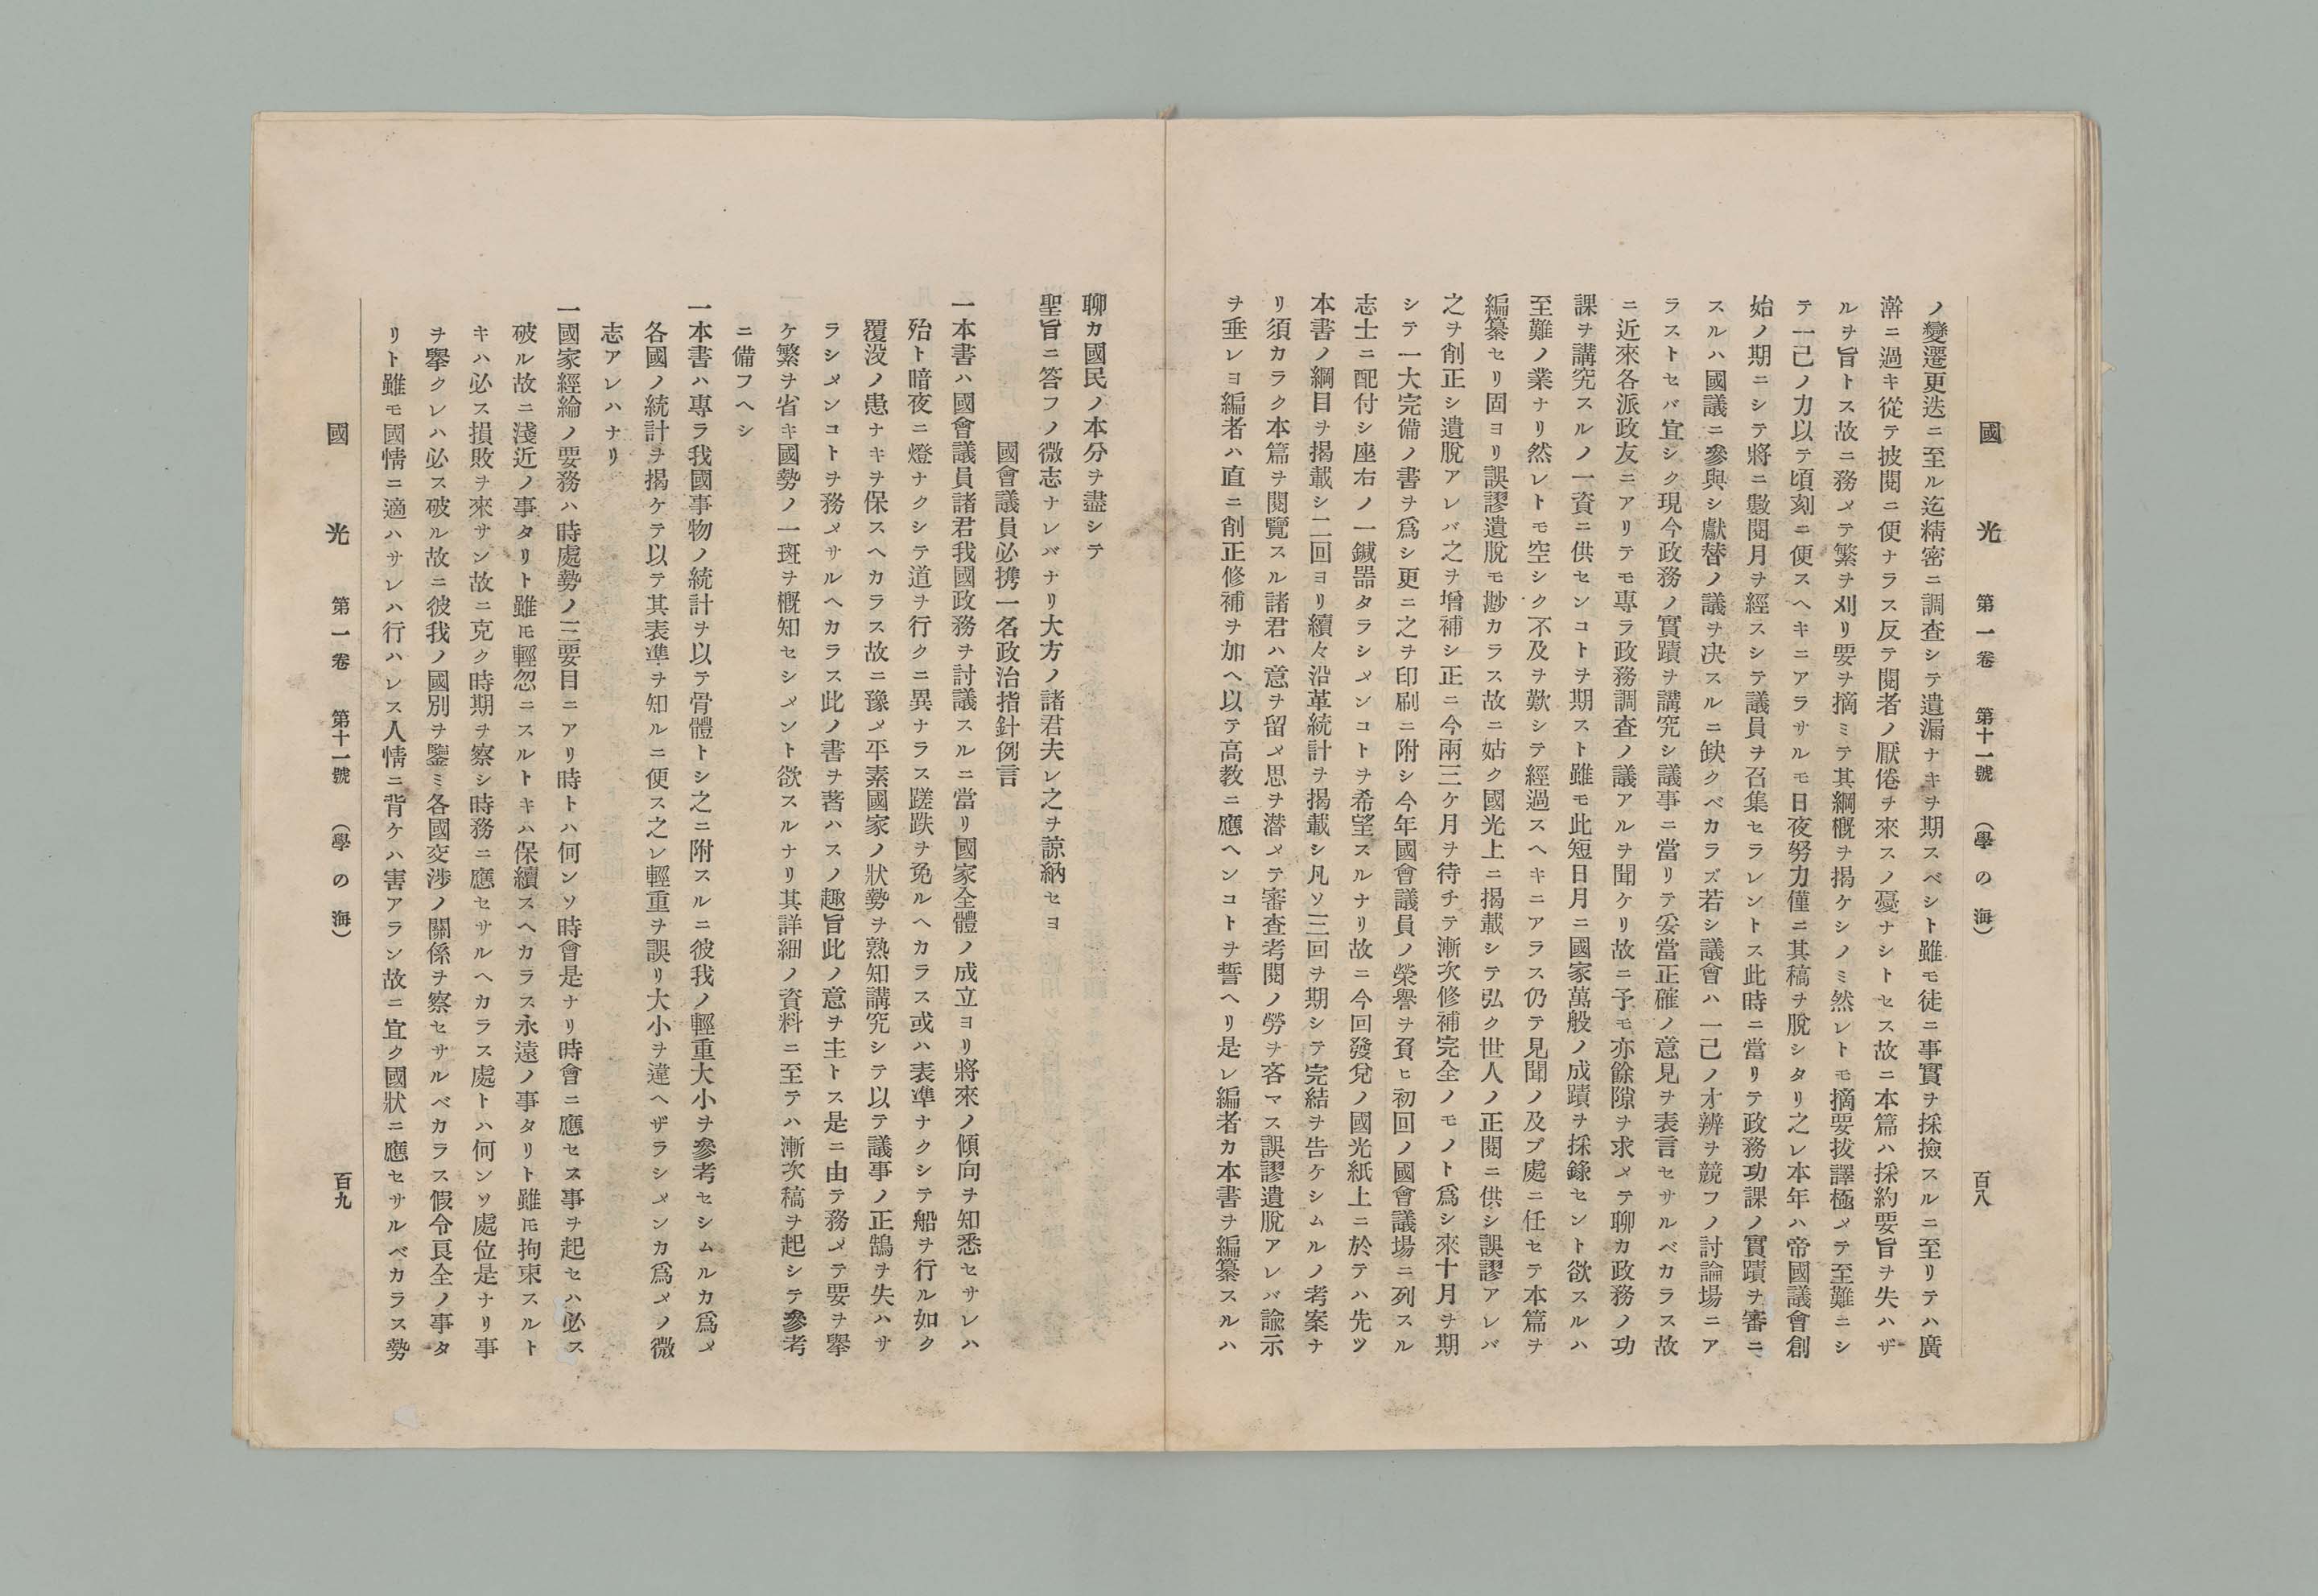 國光 第一卷 第十一號 (學の海) 百八
ノ變遷更迭ニ至ル迄精密ニ調査シテ遺漏ナキヲ期スベシト雖モ徒ニ事實ヲ採撿スルニ至リテハ廣
澣ニ過キ從テ披閱ニ便ナラス反テ閱者ノ厭倦ヲ來スノ憂ナシトセス故ニ本篇ハ採約要旨ヲ失ハザ
ルヲ旨トス故ニ務メテ繁ヲ刈リ要ヲ摘ミテ其綱概ヲ揭ケシノミ然レトモ摘要拔譯極メテ至難ニシ
テ一己ノ力以テ頃刻ニ便スヘキニアラサルモ日夜努力僅ニ其稿ヲ脫シタリ之レ本年ハ帝國議會創
始ノ期ニシテ將ニ數閱月ヲ經スシテ議員ヲ召集セラレントス此時ニ當リテ政務功課ノ實蹟ヲ審ニ
スルハ國議ニ參與シ獻替ノ議ヲ决スルニ缺クベカラズ若シ議會ハ一己ノ才辨ヲ競フノ討論場ニア
ラストセバ宜シク現今政務ノ實蹟ヲ講究シ議事ニ當リテ妥當正確ノ意見ヲ表言セサルベカラス故
ニ近來各派政友ニアリテモ專ラ政務調査ノ議アルヲ聞ケリ故ニ予モ亦餘隙ヲ求メテ聊カ政務ノ功
課ヲ講究スルノ一資ニ供センコトヲ期スト雖モ此短日月ニ國家萬般ノ成蹟ヲ採錄セント欲スルハ
至難ノ業ナリ然レトモ空シク不及ヲ歎シテ經過スヘキニアラス仍テ見聞ノ及プ處ニ任セテ本篇ヲ
編纂セリ固ヨリ誤謬遺脫モ尠カラス故ニ姑ク國光上ニ揭載シテ弘ク世人ノ正閱ニ供シ誤謬アレバ
之ヲ削正シ遺脫アレバ之ヲ增補シ正ニ今兩三ケ月ヲ待チテ漸次修補完全ノモノト爲シ來十月ヲ期
シテ一大完備ノ書ヲ爲シ更ニ之ヲ印刷ニ附シ今年國會議員ノ榮譽ヲ負ヒ初回ノ國會議場ニ列スル
志士ニ配付シ座右ノ一鍼噐タラシメンコトヲ希望スルナリ故ニ今回發兌ノ國光紙上ニ於テハ先ツ
本書ノ綱目ヲ揭載シ二回ヨリ續々沿革統計ヲ揭載シ凡ソ三回ヲ期シテ完結ヲ告ケシムルノ考案ナ
リ須カラク本篇ヲ閱覽スル諸君ハ意ヲ留メ思ヲ潛メテ審査考閱ノ勞ヲ吝マス誤謬遺脫アレバ諭示
ヲ垂レヨ編者ハ直ニ削正修補ヲ加ヘ以テ高敎ニ應ヘンコトヲ誓ヘリ是レ編者カ本書ヲ編纂スルハ
聊カ國民ノ本分ヲ盡シテ
聖旨ニ答フノ微志ナレバナリ大方ノ諸君夫レ之ヲ諒納セヨ
國會議員必携一名政治指針例言
一本書ハ國會議員諸君我國政務ヲ討議スルニ當リ國家全體ノ成立ヨリ將來ノ傾向ヲ知悉セサレハ
殆ト暗夜ニ燈ナクシテ道ヲ行クニ異ナラス蹉跌ヲ免ルヘカラス或ハ表準ナクシテ船ヲ行ル如ク
覆没ノ患ナキヲ保スヘカラス故ニ豫メ平素國家ノ狀勢ヲ熟知講究シテ以テ議事ノ正鵠ヲ失ハサ
ラシメンコトヲ務メサルヘカラス此ノ書ヲ著ハスノ趣旨此ノ意ヲ主トス是ニ由テ務メテ要ヲ擧
ケ繁ヲ省キ國勢ノ一斑ヲ概知セシメント欲スルナリ其詳細ノ資料ニ至テハ漸次稿ヲ起シテ參考
ニ備フヘシ
一本書ハ專ラ我國事物ノ統計ヲ以テ骨體トシ之ニ附スルニ彼我ノ輕重大小ヲ參考セシムルカ爲メ
各國ノ統計ヲ揭ケテ以テ其表準ヲ知ルニ便ス之レ輕重ヲ誤リ大小ヲ違ヘザラシメンカ爲メノ微
志アレハナリ
一國家經綸ノ要務ハ時處勢ノ三要目ニアリ時トハ何ンソ時會是ナリ時會ニ應セス事ヲ起セハ必ス
破ル故ニ淺近ノ事タリト雖モ輕忽ニスルトキハ保續スヘカラス永遠ノ事タリト雖モ拘束スルト
キハ必ス損敗ヲ來サン故ニ克ク時期ヲ察シ時務ニ應セサルヘカラス處トハ何ンソ處位是ナリ事
ヲ擧クレハ必ス破ル故ニ彼我ノ國別ヲ鑒ミ各國交涉ノ關係ヲ察セサルベカラス假令良全ノ事タ
リト雖モ國情ニ適ハサレハ行ハレス人情ニ背ケハ害アラン故ニ宜ク國狀ニ應セサルベカラス勢
國光 第一卷 第十一號 (學の海) 百九